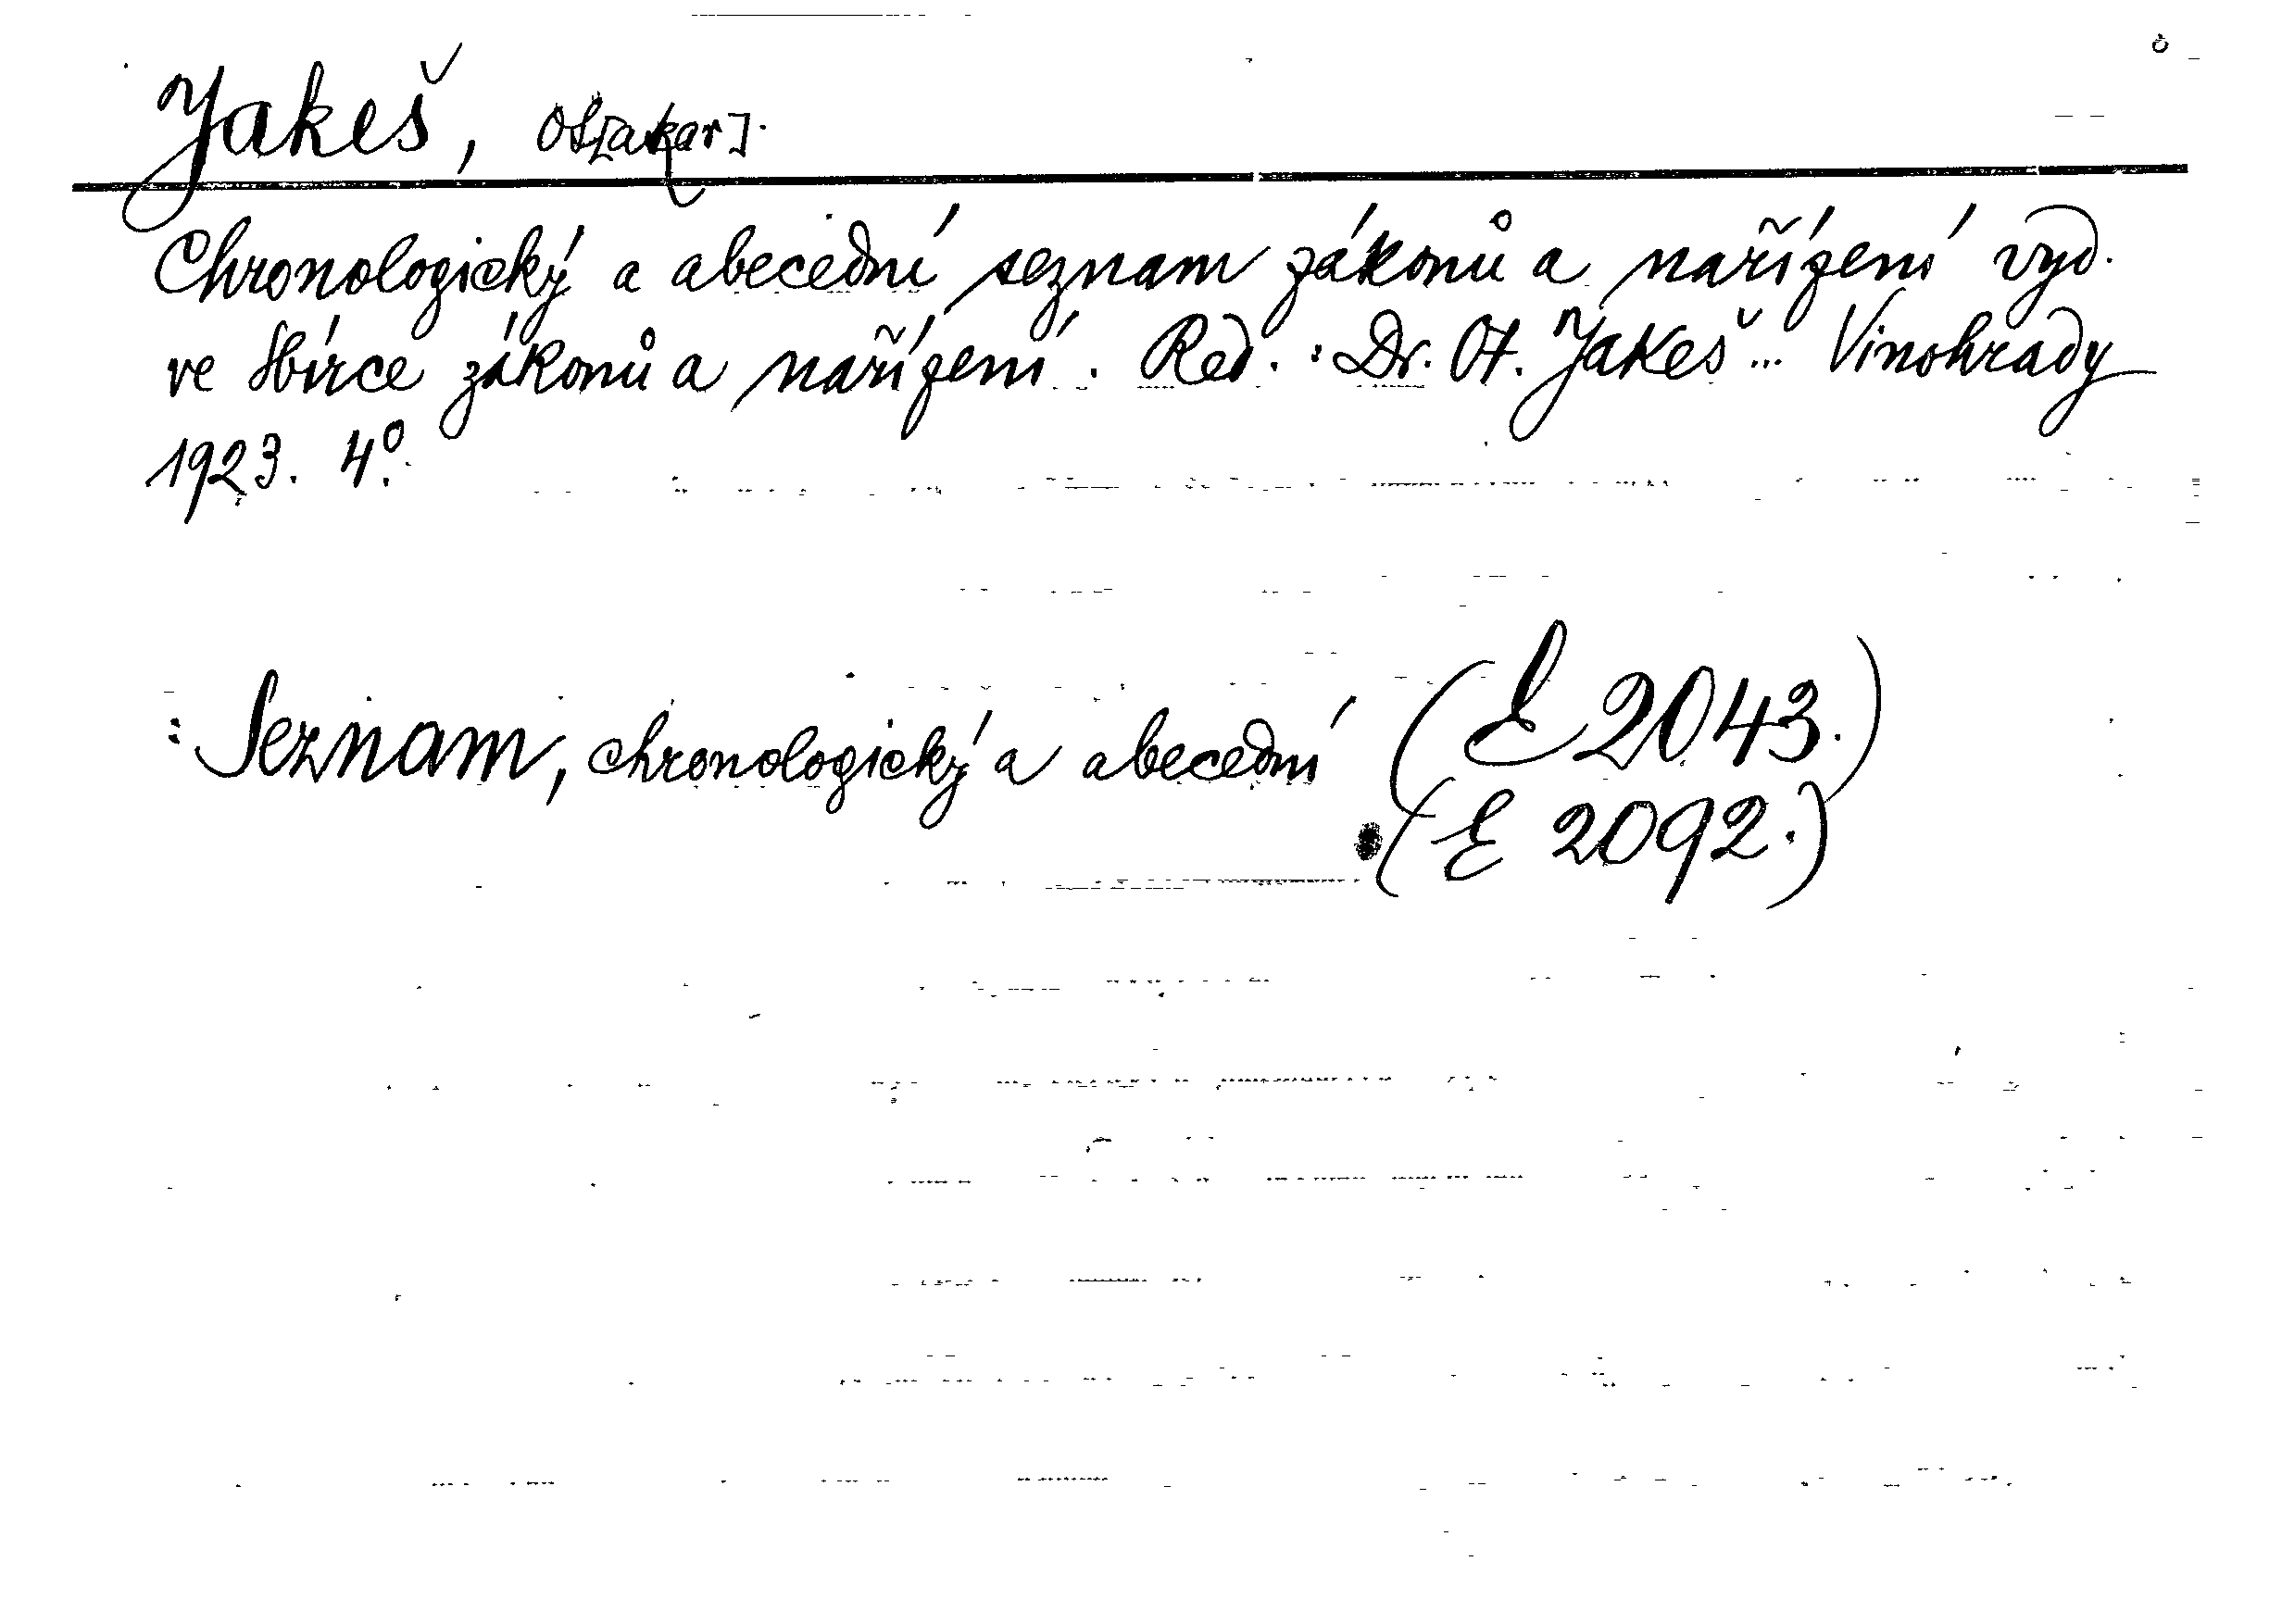 Jakeš, Ot[akar].
Chronologický a abecední seznam zákonů a nařízení vyd.
ve Sbírce zákonů a nařízení. Red.: Dr. Ot. Jakeš... Vinohrady
1923. 4°.
: Seznam, chronologický a abecední (E 2043.)
(E 2092.)